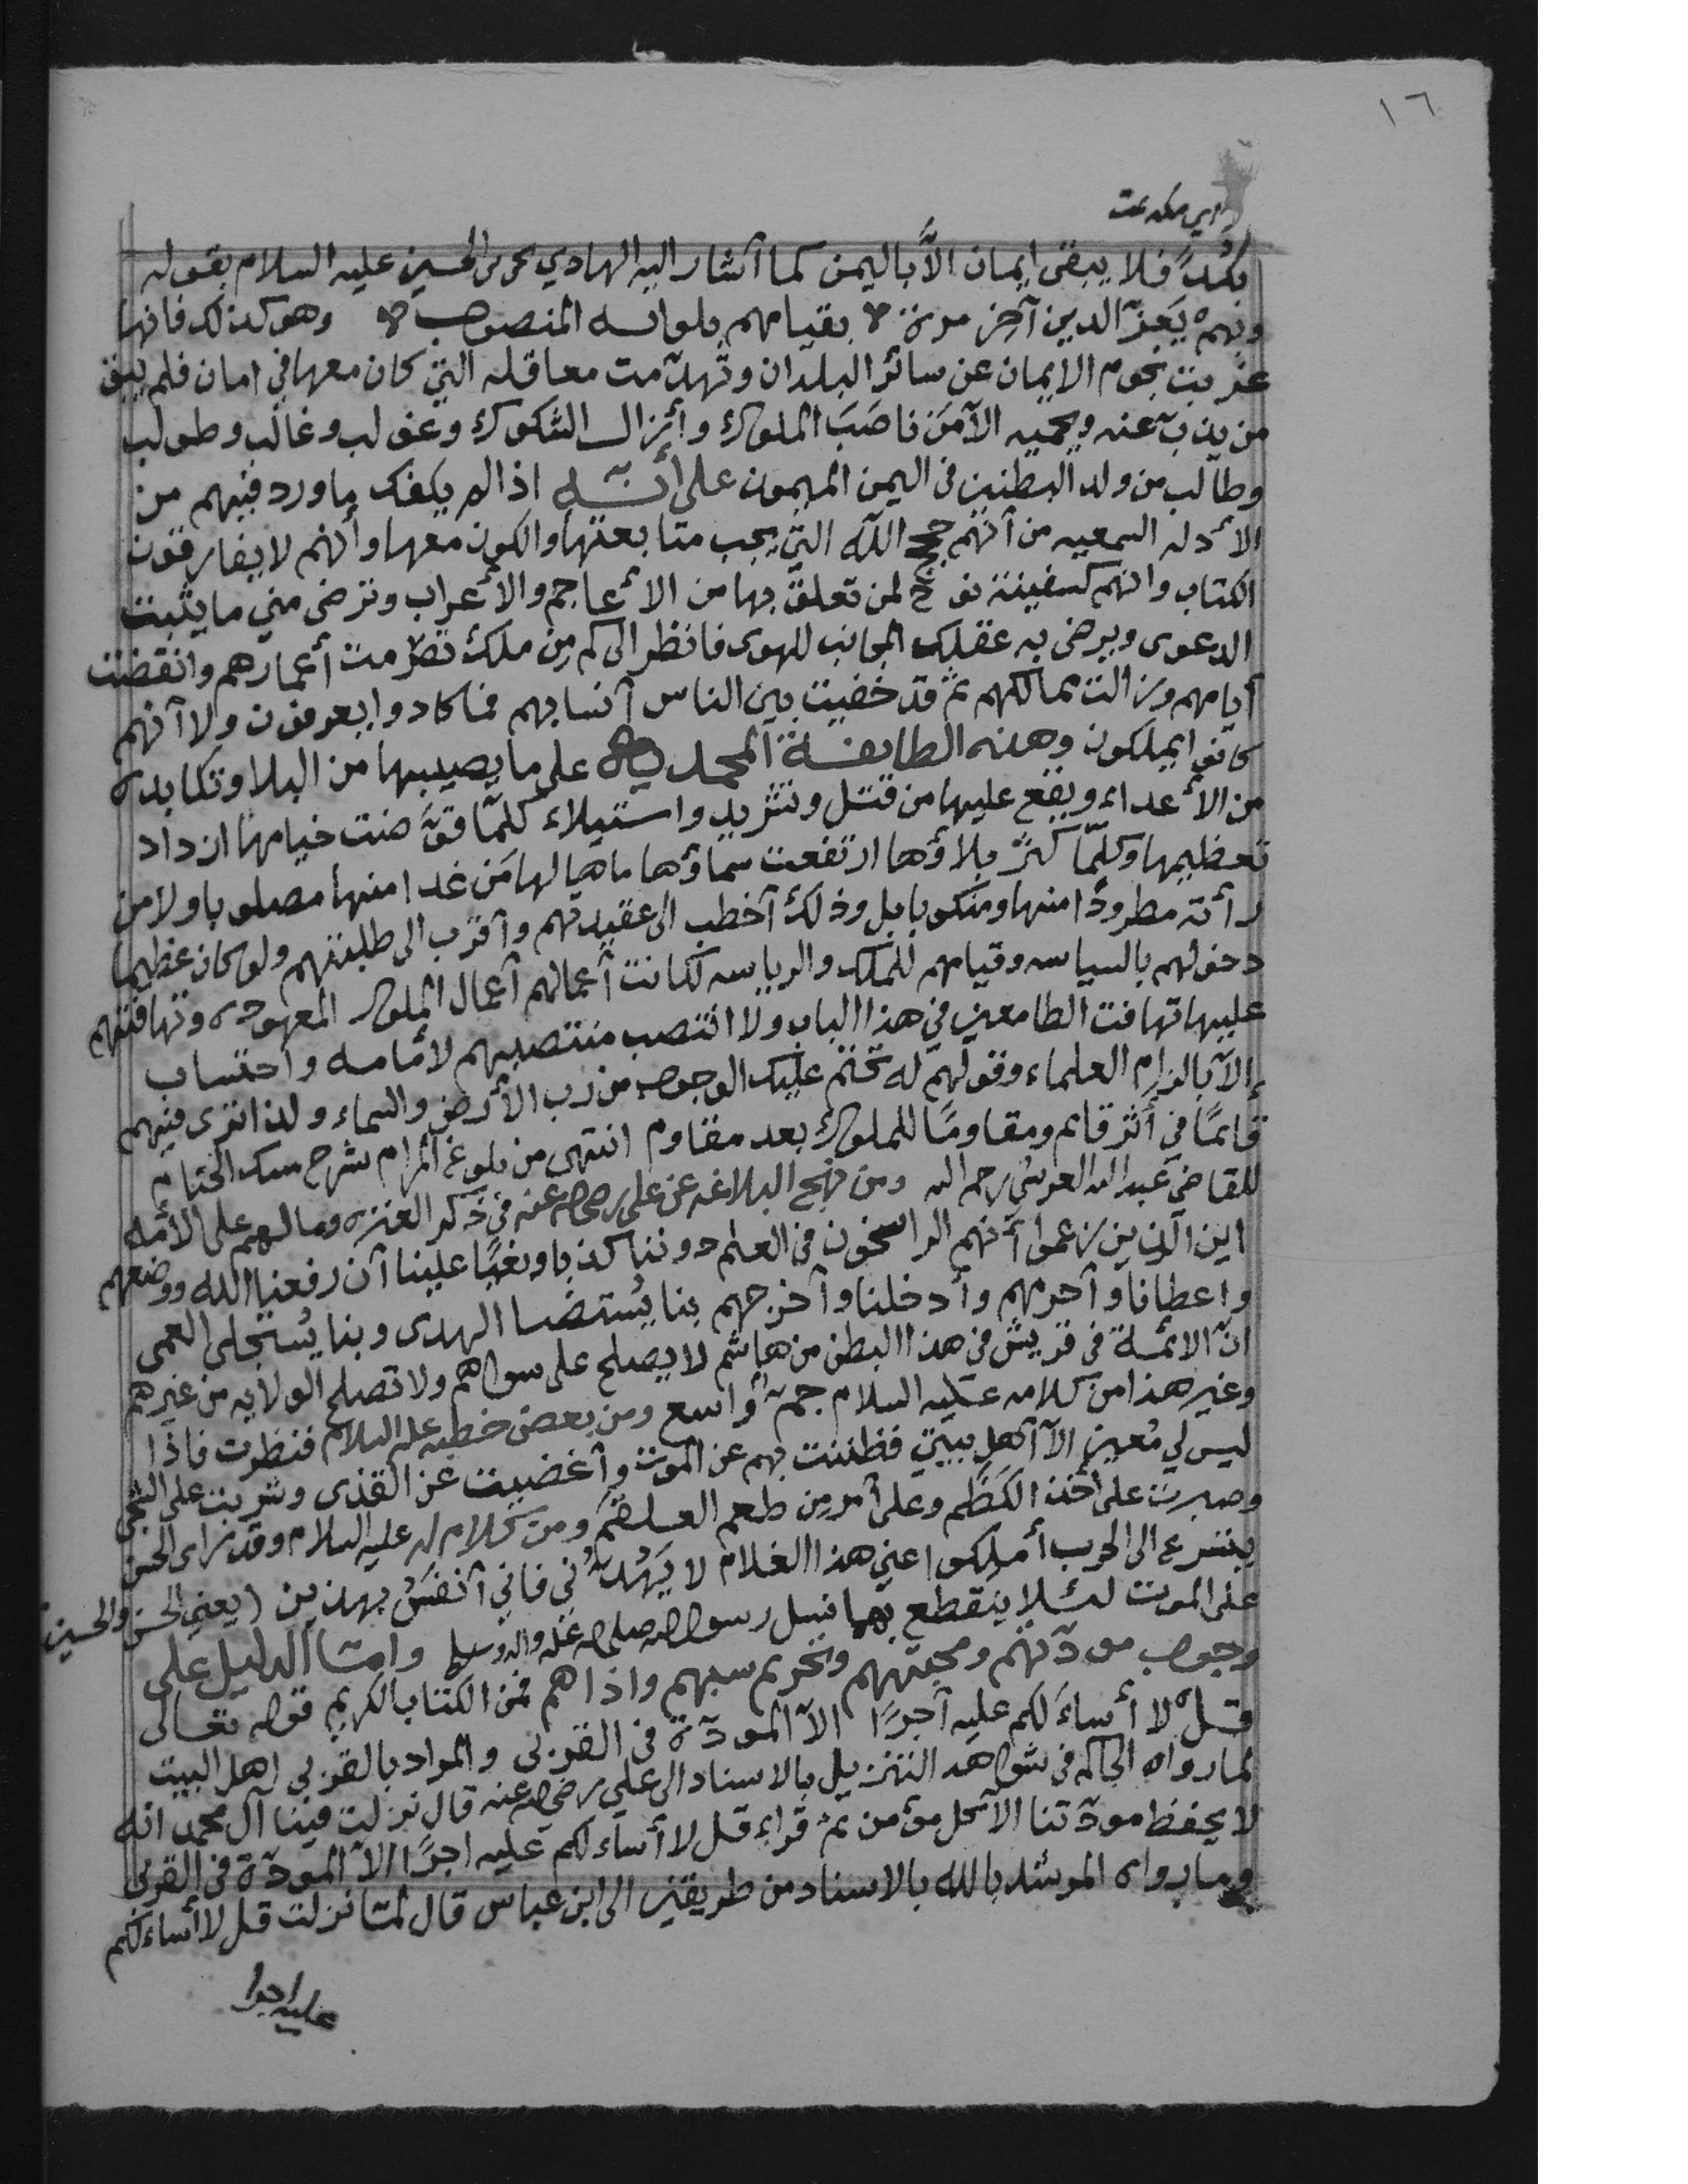 ١٦
بكد فلا يبقى ايمان الا باليمن كما أشار اليه الهادي يحيى بن الحسين عليه السلام بقوله
وبهم يعز الدين آخر مرة بقيامهم بلوائه المنصوب وهو كذلك فانها
غربت نجوم الايمان عن سائر البلدان وتهدّمت معاقله التي كان معها في امان فلم يبق
من يذبّ عنه ويحميه الا من ناصَبَ الملوك وأزال الشكوك وغولب وغالب وطولب
وطالب من ولد البطنين في اليمن الميمون على أنّه اذا لم يكفك ما ورد فيهم من
الأدله السمعيه من أنهم حجج الله التي يجب متابعتها والكون معها وأنهم لا يفارقون
الكتاب وانهم كسفينة نوح لمن تعلق بها من الأعاجم والأعراب وترضى مني ما يثبت
الدعوى ويرضى به عقلك المجانب للهوى فانظر الى كم من ملك تصرمت أعمارهم وانقضت
أيامهم وزالت ممالكهم ثم قد خفيت بين الناس أنسابهم فما كادوا يعرفون ولا أنهم
كانوا يملكون وهذه الطايفة المحمديه على ما يصيبها من البلا وتكابده
من الأعداء ويقع عليها من قتل وتشريد واستيلاء كلمّا قوّضت خيامها ازداد
تعظيمها وكلمّا كثر بلاؤها ارتفعت سماؤها ماهيا لها مَن غدا منها مصلوبا ولا من
رأته مطرودًا منها ومنكوبا بل وذلك أخطب الى عقيدتهم وأقرب الى طلبتهم ولو كان عظيما
دخولهم بالسياسه وقيامهم للملك والرياسه لكانت أعمالهم أعمال الملوك المعهوده وتهافتهم
عليها تهافت الطامعين في هذا الباب ولا انتصب منتصبهم لأمامه واحتساب
إلا بالزام العلماء وقولهم له تحتم عليك الوجوب من رب الأرض والسماء ولذا ترى فيهم
قايمًا في أثر قايم ومقاومًا للملوك بعد مقاوم انتهى من بلوغ المرام شرح مسك الختام
للقاضي عبد الله العرشي رحمه الله ومن نهج البلاغه عن علي رضي الله عنه في ذكر العتره وما لهم على الأمه
اين الذين زعموا أنهم الراسخون في العلم دوننا كذبا وبغيًا علينا أن رفعنا الله ووضعهم
واعطانا وأحرمهم وأدخلنا وأخرجهم بنا يُستضا الهدى وبنا يُستجلى العمى
انّ الائمة في قريش في هذا البطن من هاشم لا يصلح على سواهم ولا تصلح الولايه من غيرهم
وغير هذا من كلامه عليه السلام جمّ واسع ومن بعض خطبه عليه السلام فنظرت فاذا
ليس لي مُعين الا أهل بيتي فظننت بهم عن الموت وأغضيت عن القذى وشربت على الشجى
وصبرت على أخذ الكَظَم وعلى أمر من طعم العلقم ومن كلام له عليه السلام وقد رآى الحسن
يتسرع الى الحرب أملكوا عني هذا الغلام لا يَهُدّني فاني أنفَسُ بهذين (يعني الحسن والحسين)
على الموت لئلا ينقطع بهما نسل رسول الله صلى الله عليه واله وسلم وامّا الدليل على
وجوب مودتهم ومحبتهم وتحريم سبهم واذاهم فمن الكتاب الكريم قوله تعالى
قل لا أساءَلكم عليه أجرًا الا المودّة في القربى والمراد بالقربى اهل البيت
لما رواه الحاكم في شواهد التنزيل بالاسناد الى علي رضي الله عنه قال نزلت فينا آل محمد انه
لا يحفظ مودّتنا الا كل مؤمن ثم قراء قل لا أساءلكم عليه اجرًا الا المودّة في القربى
وما رواه المرشد بالله بالاسناد من طريقين الى ابن عباس قال لمّا نزلت قل لا أساءلكم
عليه اجرا